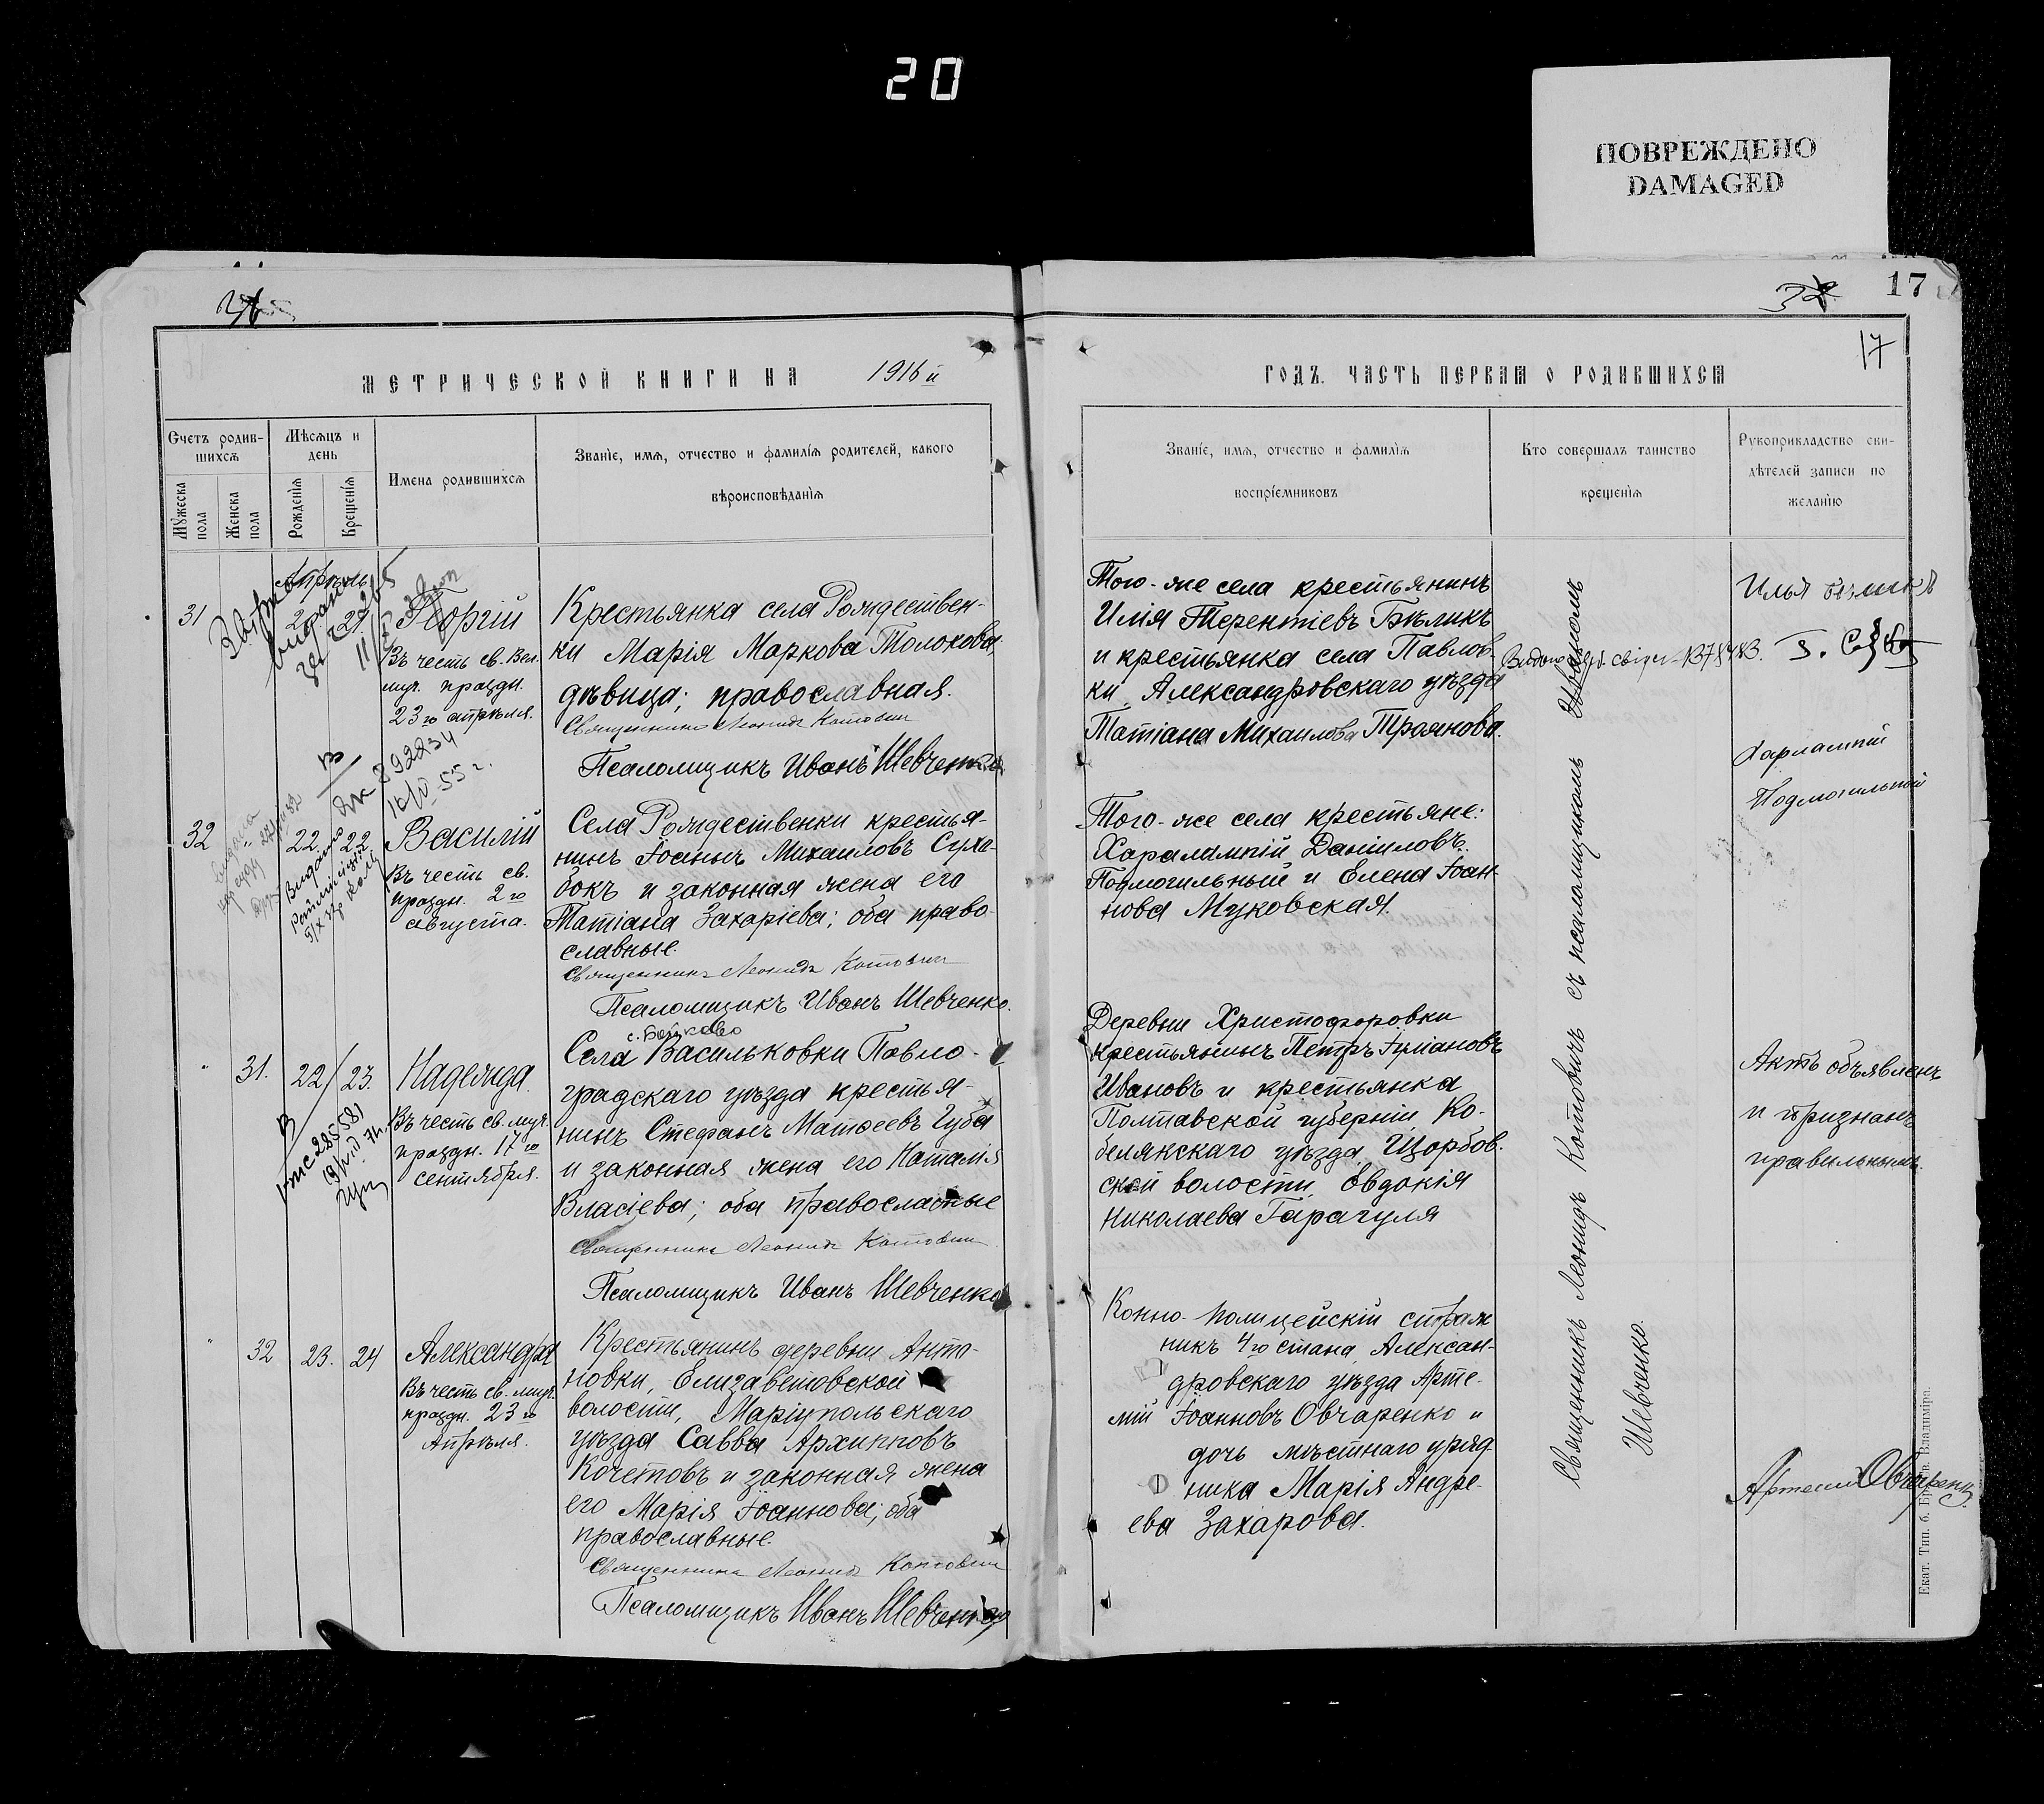 20
ПОВРЕЖДЕНО
DAMAGED
17
17
МЕТРИЧЕСКОЙ КНИГИ НА 1916 й
ГОДЪ. ЧАСТЬ ПЕРВАЯ О РОДИВШИХСЯ
Счетъ родив-
шихся
Мужеска пола
Женска пола
Мѣсяцъ и
день
Рожденія
Крещенія
Имена родившихся
Званіе, имя, отчество и фамилія родителей, какого
вѣроисповѣданія
Званіе, имя, отчество и фамилія
воспріемниковъ
Кто совершалъ таинство
крещенія
Рукоприкладство сви-
дѣтелей записи по
желанію
Апрѣль
31
Георгій
Въ честь св. Вел.
муч. праздн.
23го апрѣля.
Крестьянка села Рождествен-
ки Марія Маркова Толохова,
дѣвица; православная.
Священникъ Леонидъ Котовичъ
Псаломщикъ Иванъ Шевченко
Того-же села крестьянинъ
Илія Терентіевъ Бѣликъ
и крестьянка села Павлов-
ки, Александровскаго уѣзда
Татіана Михаилова Троянова.
Илья
892234
55 г.
32 " 22. 22
Василій
Въ честь св.
праздн. 2го
августа.
Видано
Села Рождественки крестья-
нинъ Іоаннъ Михаиловъ Суха-
бокъ и законная жена его
Татіана Захаріева; оба право-
славные.
Священникъ Леонидъ Котовичъ
Псаломщикъ Иванъ Шевченко.
Того-же села крестьяне:
Харалампій Даніиловъ
Подмогильный и Елена Іоан-
нова Муковская.
Харлампій
Подмогильный
" 31. 22 23.
Надежда.
Въ честь св. муч.
праздн. 17го
сентября.
285581
Села Васильковки Павло-
градскаго уѣзда крестья-
нинъ Стефанъ Матѳеевъ Губа
и законная жена его Наталія
Власіева; оба православные
Священникъ Леонидъ Котовичъ
Псаломщикъ Иванъ Шевченко
Деревни Христофоровки
крестьянинъ Петръ Іуліановъ
Ивановъ и крестьянка
Полтавской губерніи, Ко-
белякскаго уѣзда, Щорбов-
ской волости, Евдокія
Николаева Гарагуля
Актъ объявленъ
и признанъ
правильнымъ.
" 32 23. 24
Александра
Въ честь св. муч.
праздн. 23го
Апрѣля.
Крестьянинъ деревни Анто-
новки, Елизаветовской
волости, Маріупольскаго
уѣзда Савва Архипповъ
Кочетовъ и законная жена
его Марія Іоаннова; оба
православные.
Священникъ Леонидъ Котовичъ
Псаломщикъ Иванъ Шевченко
Конно-полицейскій страж
никъ 4го стана, Алексан-
дровскаго уѣзда Арте-
мій Іоанновъ Овчаренко и
дочь мѣстнаго уряд
ника Марія Андре-
ева Захарова.
Артемий Овчаренко
Священникъ Леонидъ Котовичъ съ псаломщикомъ Иваномъ
Шевченко.
Екат. Тип. б. Братв. Владиміра.